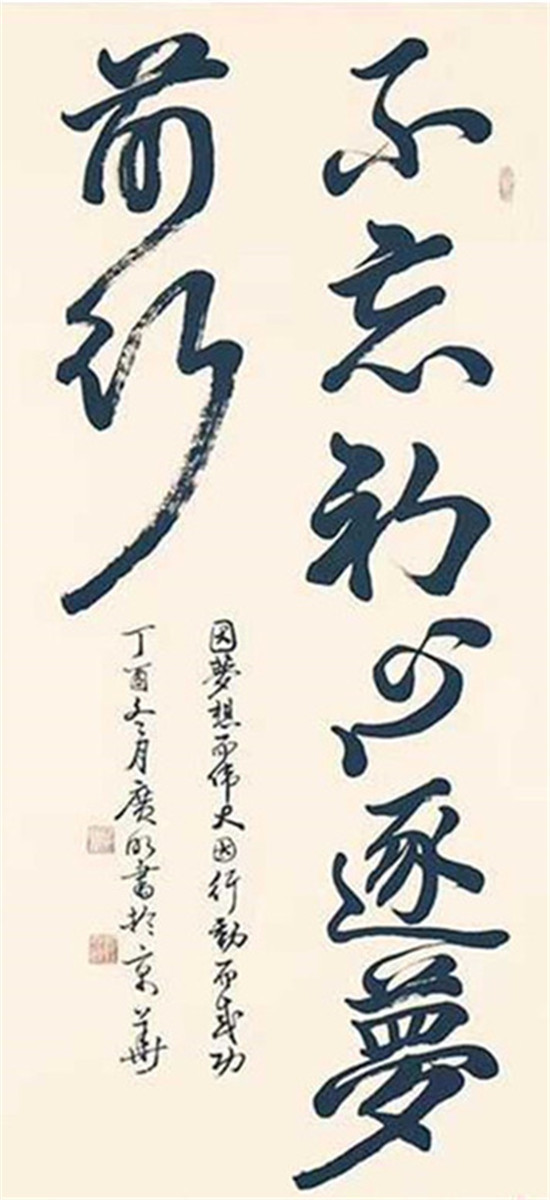 不忘初心逐夢
前行
因夢想而伟大因行動而成功
丁酉冬月廣明書於京華